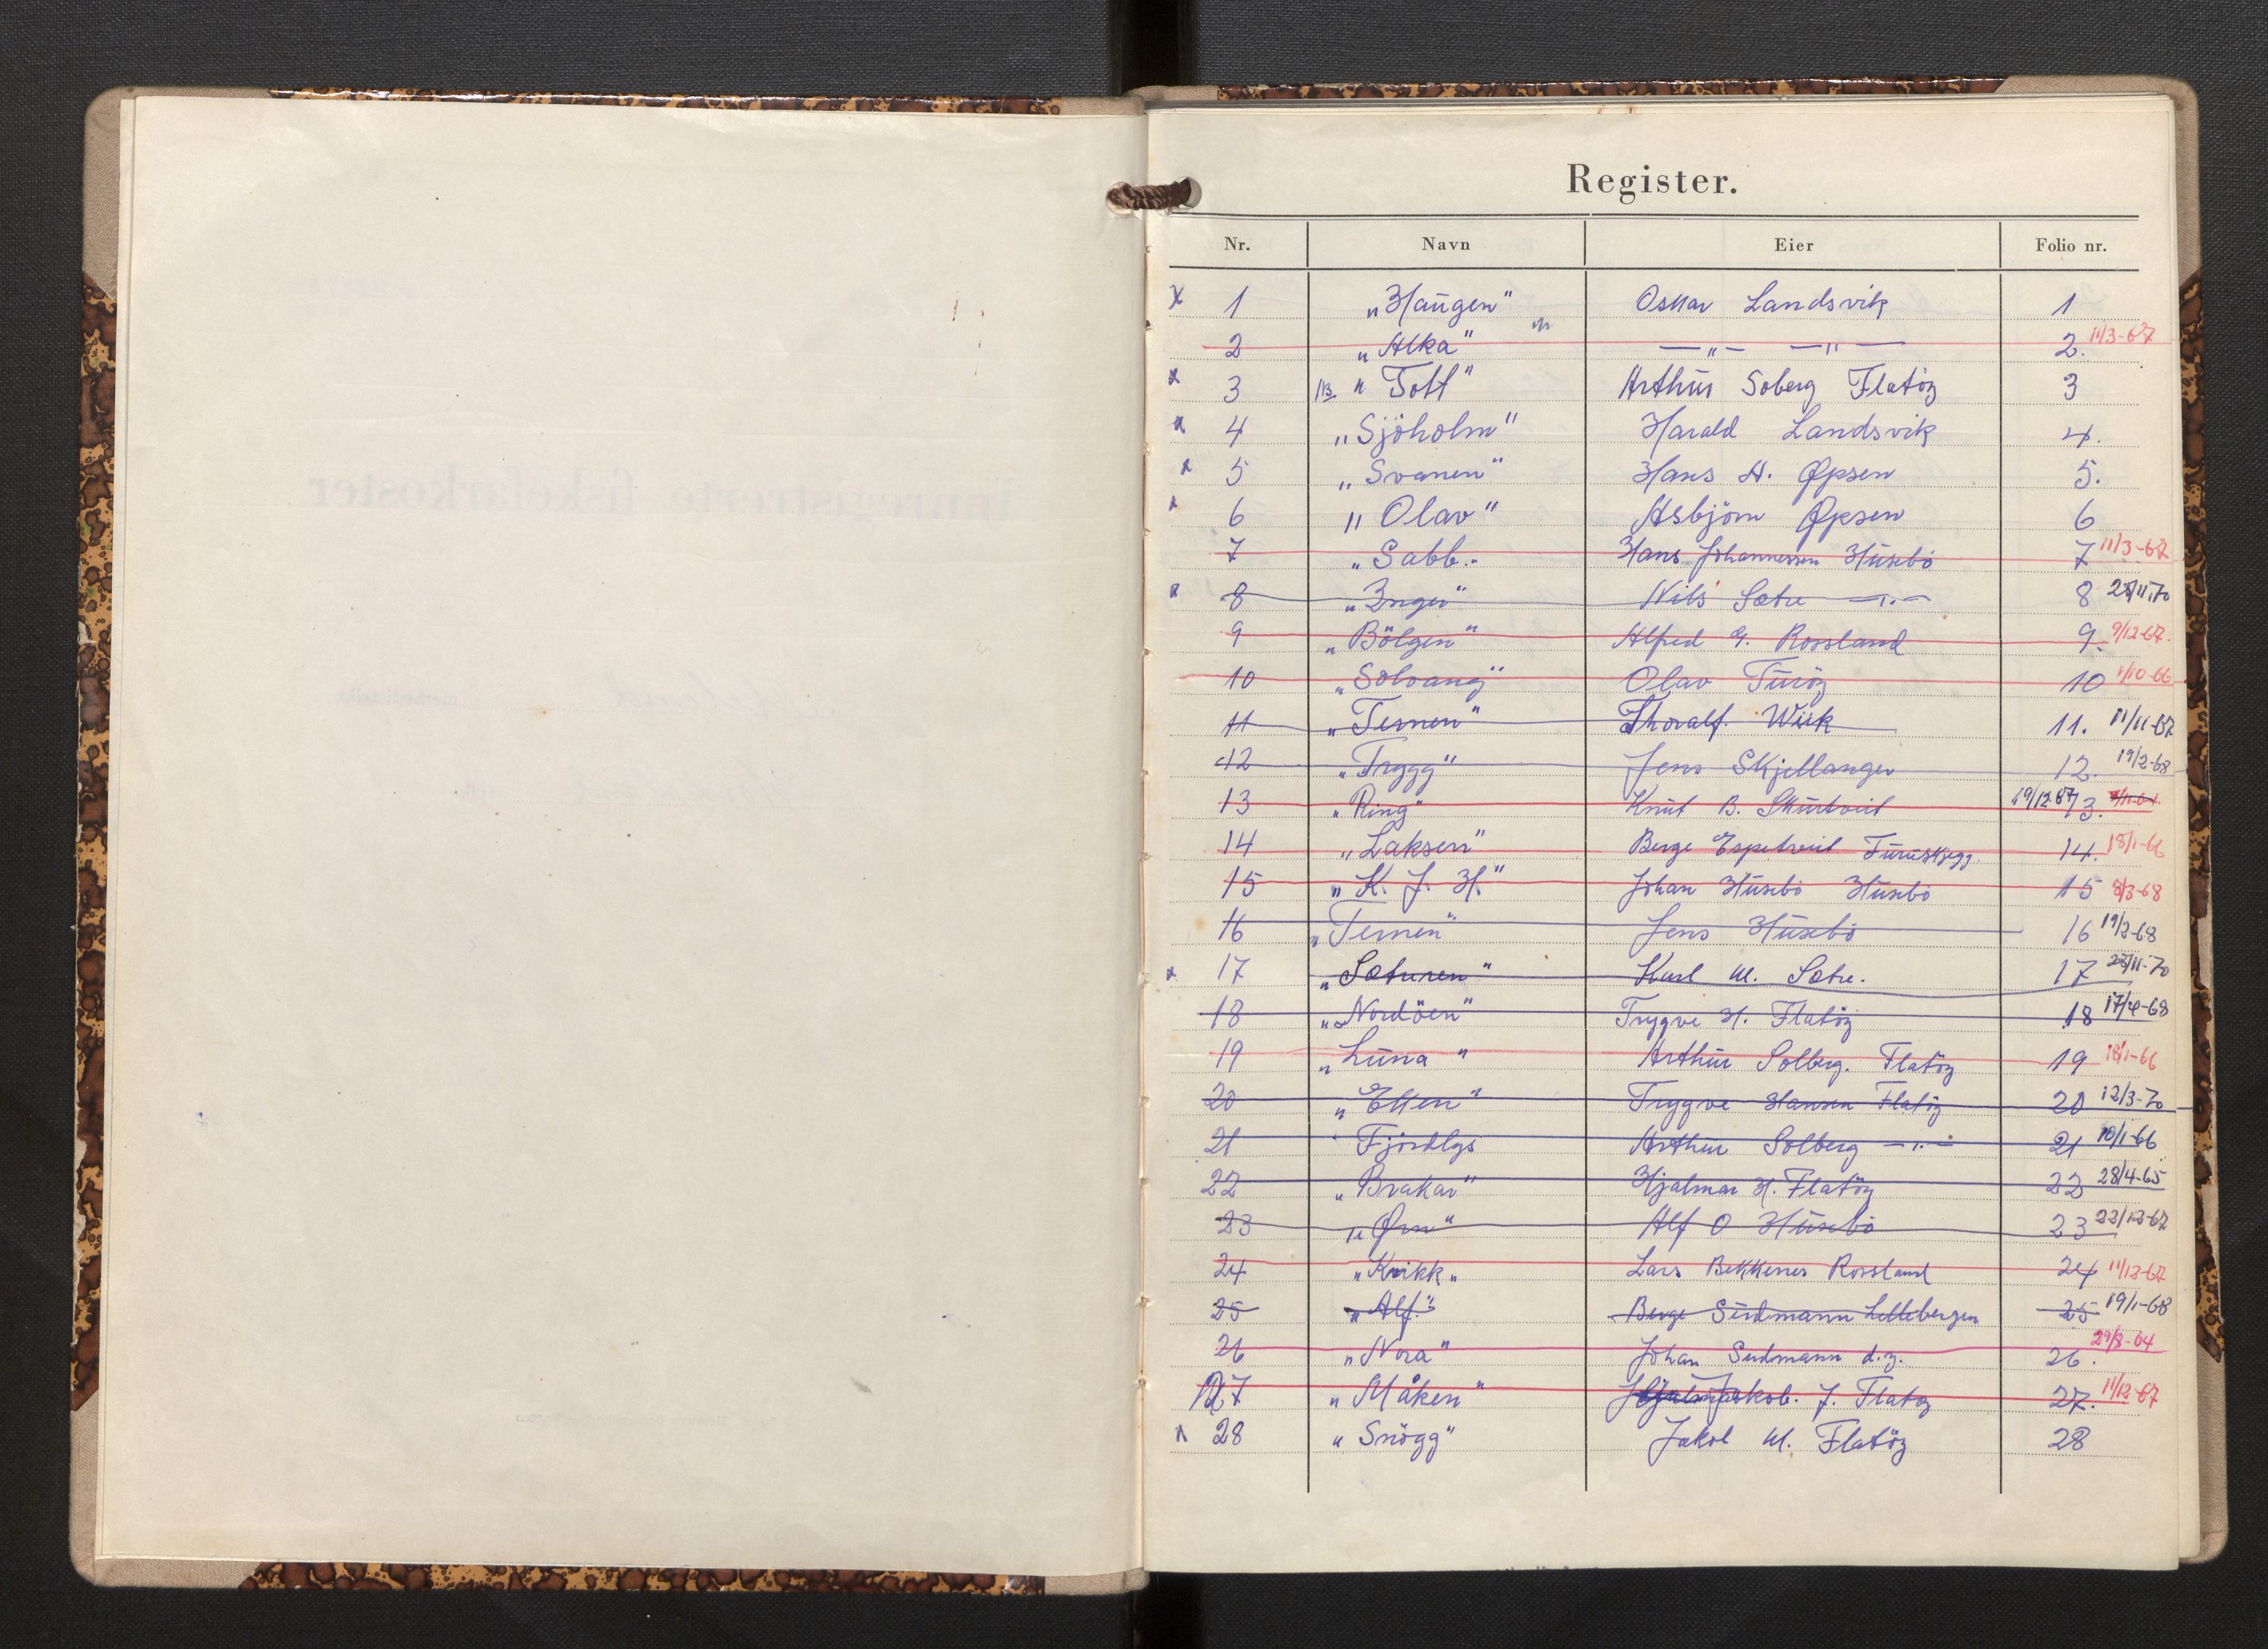 Register.
Nr. Navn Eier Folio nr.
x 1 „Haugen" Oskar Landsvik 1
2 „Alka" —„— —„— 2. 11/3-67
x 3 „Tott" Arthur Soberg Flatöy 3
x 4 „Sjöholm" Harald Landsvik 4.
x 5 „Svanen" Hans A. Øpsen 5.
x 6 „Olav" Asbjörn Øpsen 6
7 „Sabb" Hans Johannessen Husebö 7 11/3-67
x 8 „Inger" Nils Sætre —„— 8 11.70
9 „Bölgen" Alfred G. Rossland 9. 9/12-67.
10 „Solvang" Olav Turöy 10 /10-66
11 „Ternen" Thoralf Wiik 11. 11/11-67
12 „Trygg" Jens Skjellanger 12. 19/2-68
13 „Ring" Knut B. Skurtveit 19/12-67 13.
14 „Laksen" Berge Espetveit Furuskjegg. 14. 18/1-66
15 „K. J. H." Johan Husebö Husebö 15 8/3-68
16 „Ternen" Jens Husebö 16 19/2-68
x 17 „Sæturen" Karl M. Sætre. 17 11-70
18 „Nordöen" Trygve H. Flatöy 18 17/4-68
19 „Luna" Arthur Solberg. Flatöy 19 18/1-66
20 „Ellen" Trygve Hansen Flatöy 20 12/3-70
21 Fjordlys Arthur Solberg —„— 21 18/1-66
22 „Brakar" Hjalmar H. Flatöy 22 28/4-65
23 „Ørn" Alf O Husebö 23 22/12-67
24 „Kvikk„ Lars Bekkenes Rossland 24 11/12-67
25 „Alf" Berge Südmann Lillebergen 25 19/1-68
26 „Nora" Johan Sudmann d.y. 26. 29/8-64
27 „Måken" Jakob. J. Flatöy 27. 11/12-67
x 28 „Snögg" Jakob M. Flatöy 28